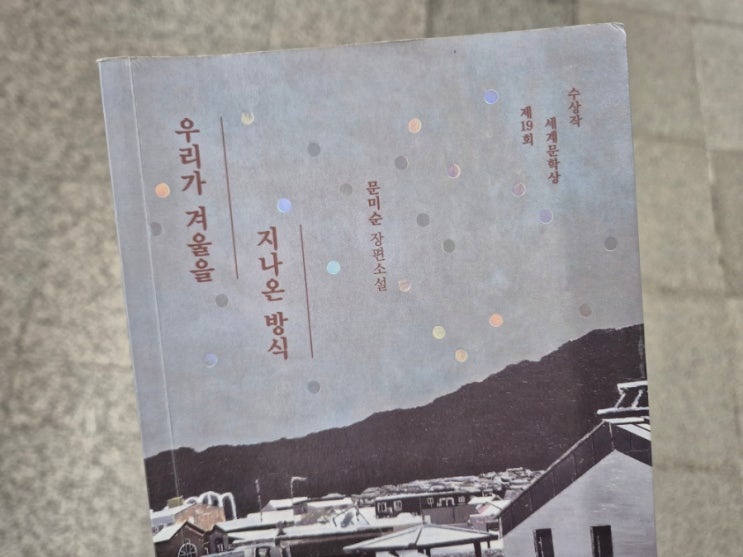 우리가 겨울을
지나온 방식
문미순 장편소설
제19회
세계문학상
수상작